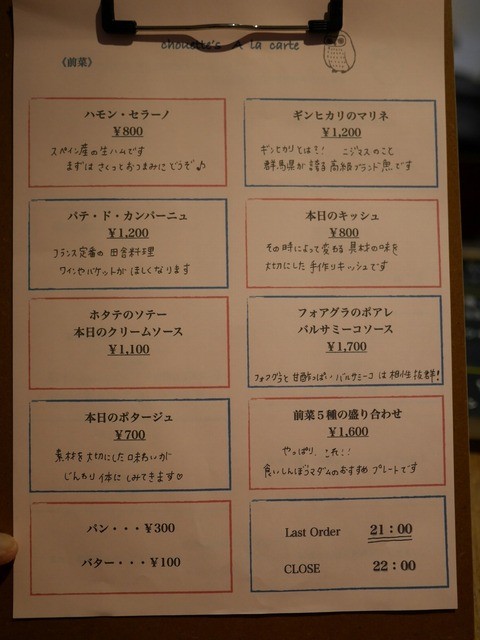 chouette's A la carte
《前菜》
ハモン・セラーノ
￥800
スペイン産の生ハムです
まずは さくっとおつまみに どうぞ♪
ギンヒカリのマリネ
￥1,200
ギンヒカリとは…! ニジマスのこと
群馬県が誇る高級ブランド魚です
パテ・ド・カンパーニュ
￥1,200
フランス定番の 田舎料理
ワインやバケットが ほしくなります
本日のキッシュ
￥800
その時によって変わる 具材の味を
大切にした 手作りキッシュです
ホタテのソテー
本日のクリームソース
￥1,100
フォアグラのポアレ
バルサミーコソース
￥1,700
フォアグラと 甘酸っぱいバルサミーコ は 相性 抜群!
本日のポタージュ
￥700
素材を大切にした味わいが
じんわり 体に しみてきます♡
前菜５種の盛り合わせ
￥1,600
やっぱり、これ!!
食いしんぼうマダムのおすすめ プレートです
パン・・・￥300
バター・・・￥100
Last Order 21：00
CLOSE 22：00